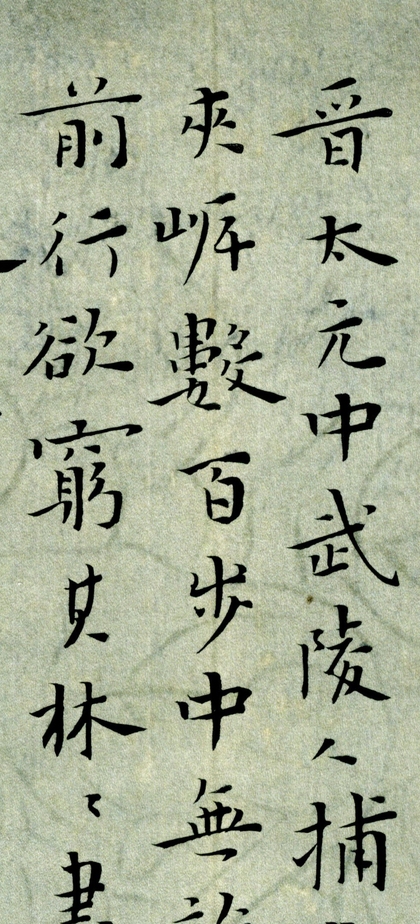 晋太元中武陵人捕
夾岸數百步中無
前行欲窮其林〻盡